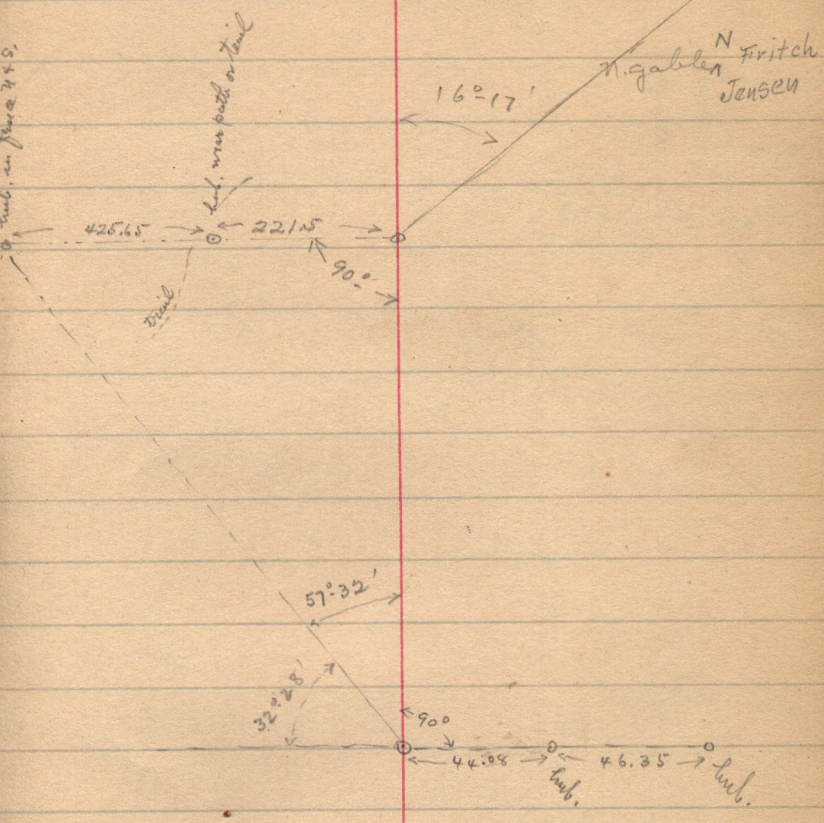 hub. in fence N & S.
hub. near path or trail
16°-17'
N. gable N Fritch
Jensen
425.65
221.5
90°
trail
57°-32'
32°-28'
90°
44.08
46.35
hub.
hub.